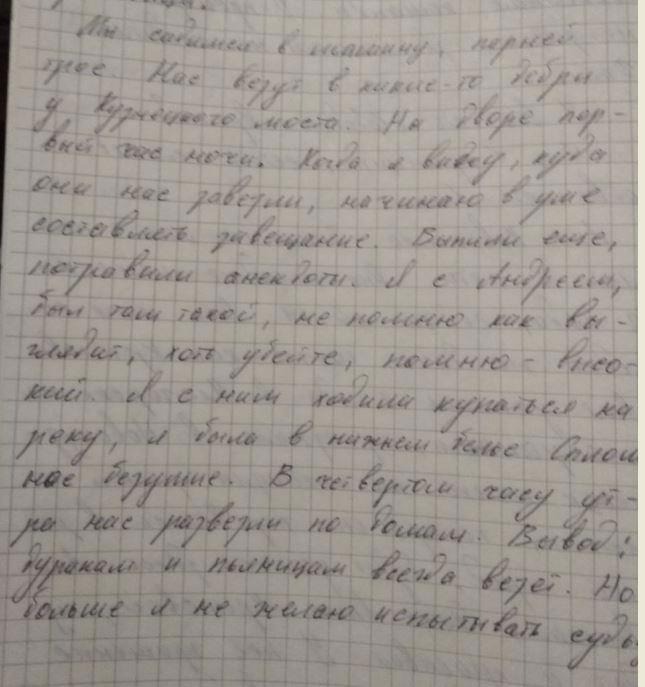 Мы садимся в машину, парней
трое. Нас везут в какие-то дебри
у Кузнецкого моста. На дворе пер-
вый час ночи. Когда я вижу, куда
они нас завезли, начинаю в уме
составлять завещание. Выпили еще,
потравили анекдоты. Я с Андреем,
был там такой, не помню как вы-
глядит, хоть убейте, помню - высо-
кий. Я с ним ходили купаться на
реку, я была в нижнем белье Сплош
ное безумие. В четвертом часу ут-
ра нас развезли по домам. Вывод:
дуракам и пьяницам всегда везет. Но
больше я не желаю испытывать судь